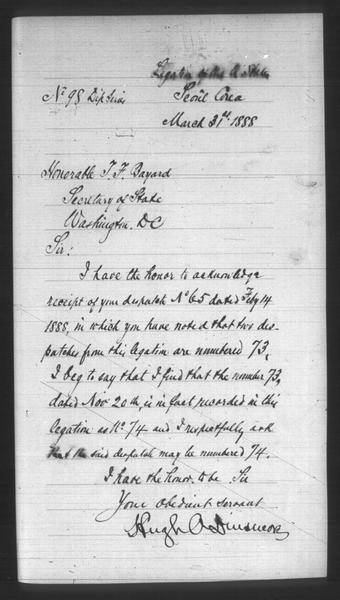 Legation of the U States
Seoul Corea
No 98 Dip Series
March 31st 1888
Honorable T. F. Bayard
Secretary of State
Washington. D.C
Sir:
I have the honor to acknowledge
receipt of your despatch No 65 dated Feby 14
1888, in which you have noted that two des-
patches from this legation are numbered 73,
I beg to say that I find that the number 73,
dated Nov 20th, is in fact recorded in this
legation as No. 74 and I respectfully ask
that the said despatch may be numbered 74.
I have the honor, to be Sir
Your obedient servant
Hugh A Dinsmore